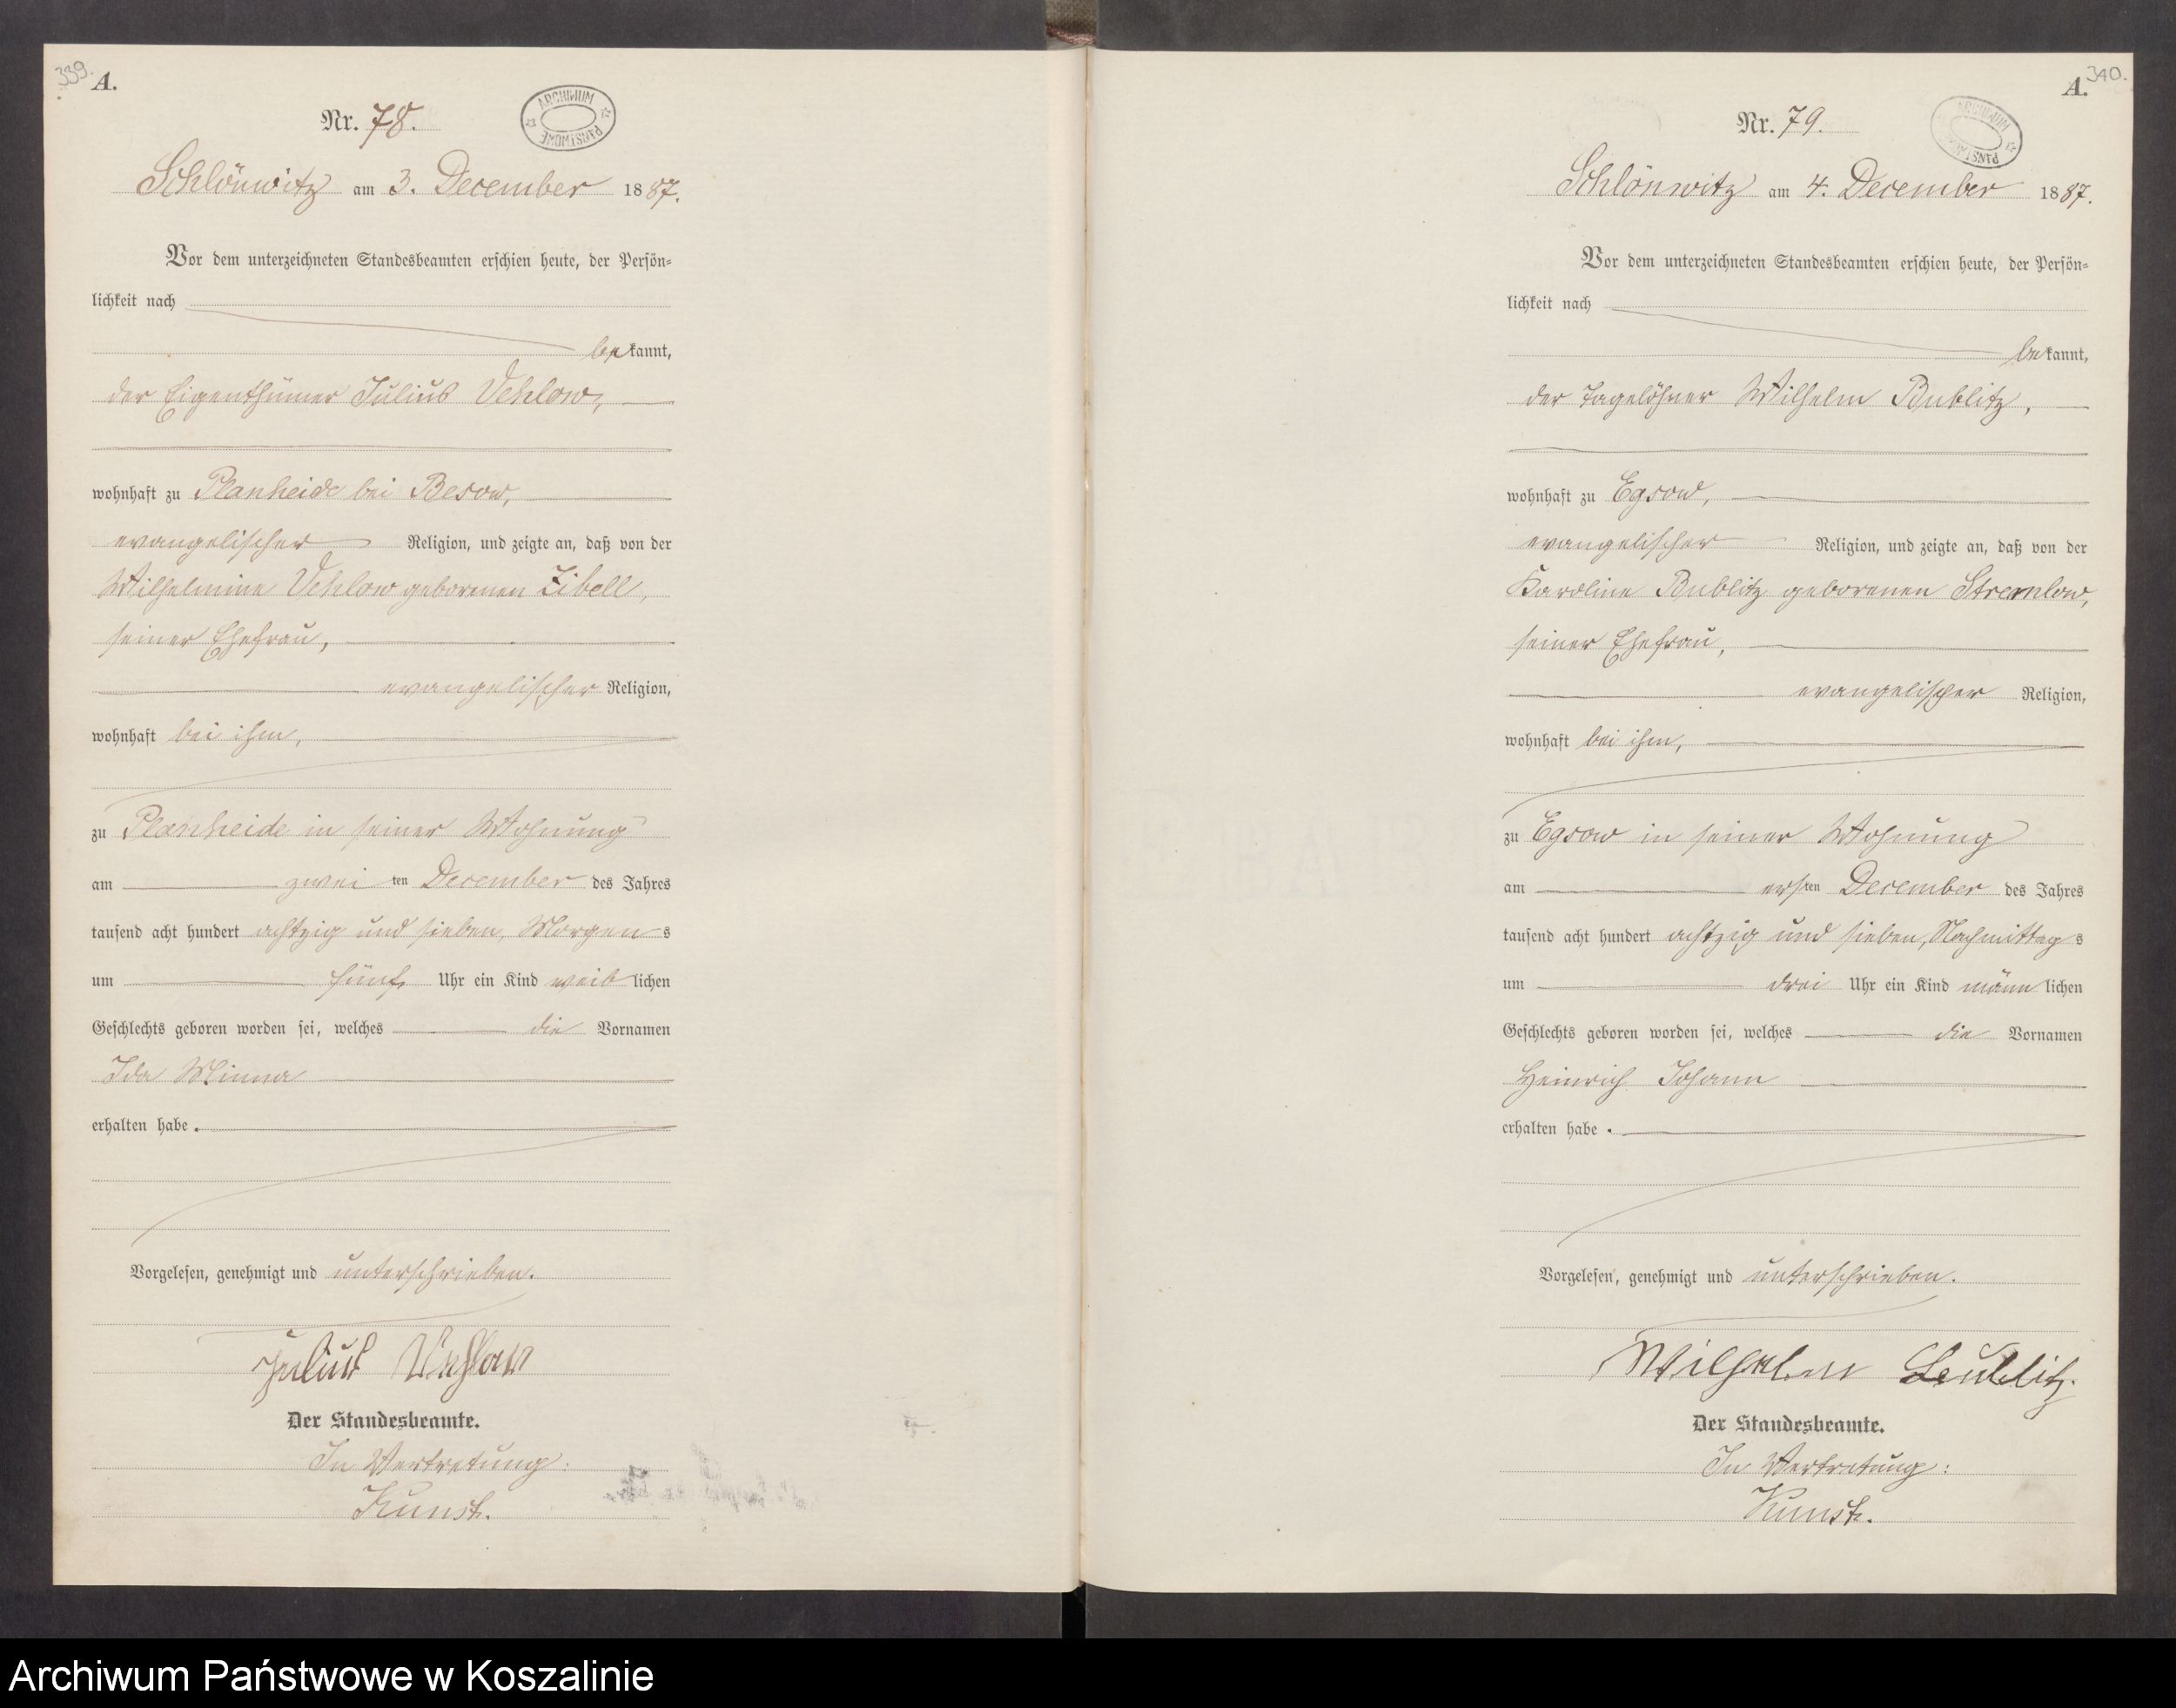 339.
A.
ARCHIWUM PAŃSTWOWE
Nr. 78.
Schlönwitz am 3. December 1887.
Vor dem unterzeichneten Standesbeamten erschien heute, der Persön-
lichkeit nach
bekannt,
der Eigenthümer Julius Vehlow,
wohnhaft zu Planheide bei Besow,
evangelischer Religion, und zeigte an, daß von der
Wilhelmine Vehlow geborenen Zibell,
seiner Ehefrau,
evangelischer Religion,
wohnhaft bei ihm,
zu Planheide in seiner Wohnung
am zweiten December des Jahres
tausend acht hundert achtzig und sieben, Morgens
um fünf Uhr ein Kind weiblichen
Geschlechts geboren worden sei, welches die Vornamen
Ida Minna
erhalten habe.
Vorgelesen, genehmigt und unterschrieben.
Julius Vehlow
Der Standesbeamte.
In Vertretung:
Kunst.
340.
A.
ARCHIWUM PAŃSTWOWE
Nr. 79.
Schlönwitz am 4. December 1887.
Vor dem unterzeichneten Standesbeamten erschien heute, der Persön-
lichkeit nach
bekannt,
der Tagelöhner Wilhelm Bublitz,
wohnhaft zu Egsow,
evangelischer Religion, und zeigte an, daß von der
Karoline Bublitz geborenen Stremlow,
seiner Ehefrau,
evangelischer Religion,
wohnhaft bei ihm,
zu Egsow in seiner Wohnung
am ersten December des Jahres
tausend acht hundert achtzig und sieben, Nachmittags
um drei Uhr ein Kind männlichen
Geschlechts geboren worden sei, welches die Vornamen
Heinrich Johann
erhalten habe.
Vorgelesen, genehmigt und unterschrieben.
Wilhelm Bublitz.
Der Standesbeamte.
In Vertretung:
Kunst.
Archiwum Państwowe w Koszalinie